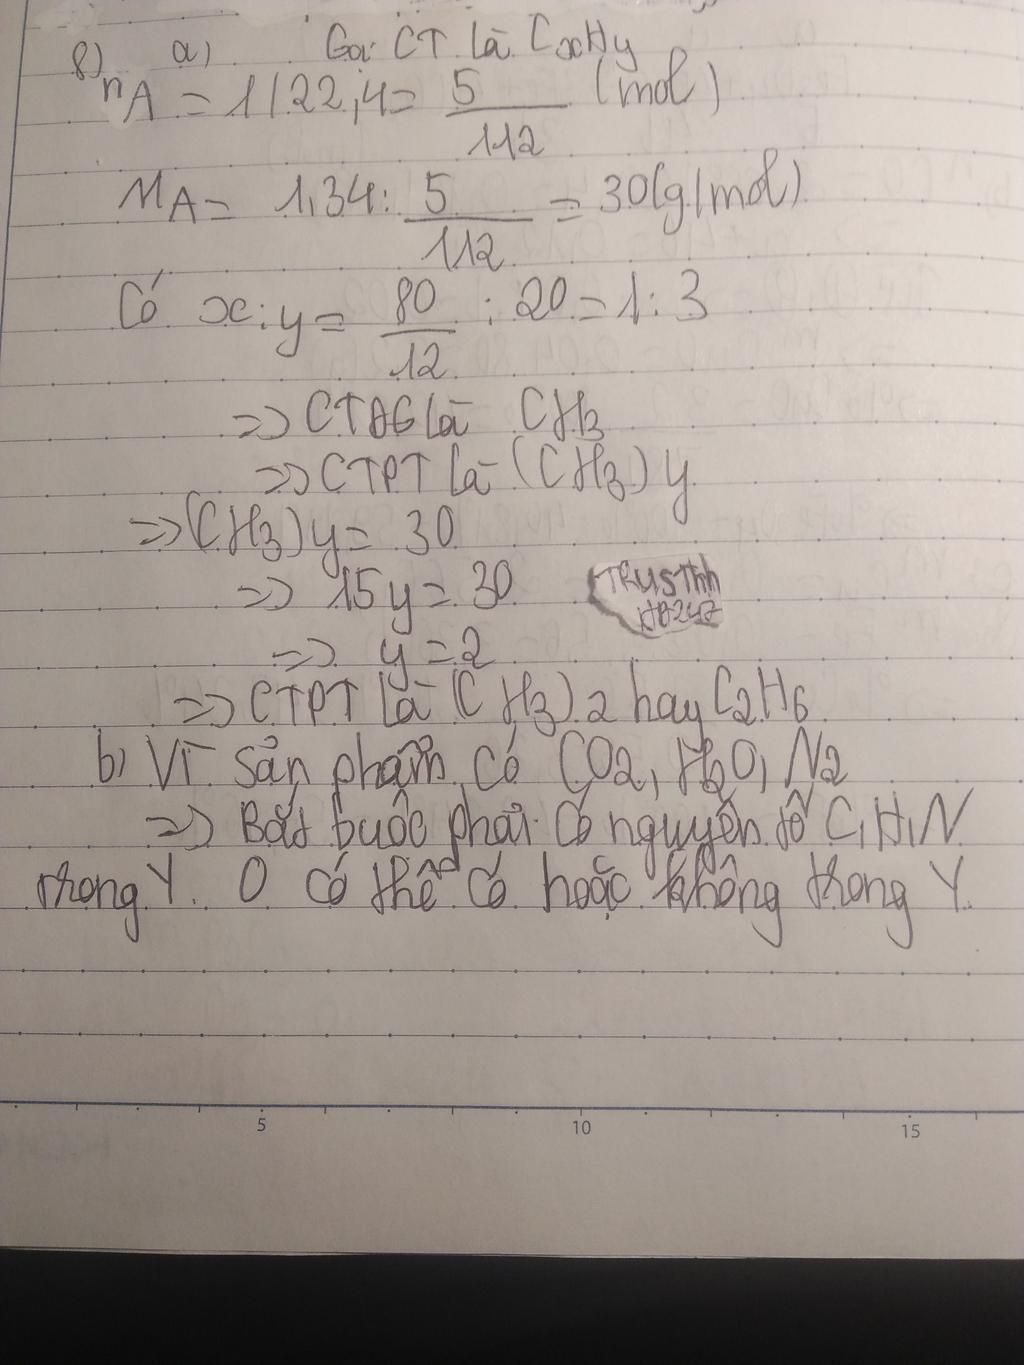 8) a) Gọi CT là CxHy
nA = 1/22,4 = 5/112 (mol)
MA = 1,34 : 5/112 = 30(g/mol)
Có x:y = 80/12 : 20 = 1:3
=> CTĐG là CH3
=> CTPT là (CH3)y
=> (CH3)y = 30
=> 15y = 30
TRUSThh
HB247
=> y = 2
=> CTPT là (CH3)2 hay C2H6
b) Vì sản phẩm có CO2, H2O, N2
=> Bắt buộc phải có nguyên tố C, H, N
trong Y. O có thể có hoặc không trong Y.
5 10 15